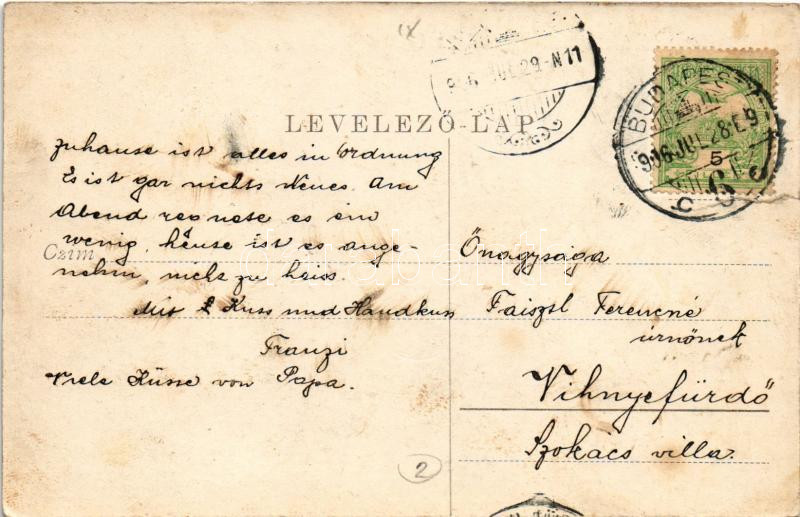 LEVELEZŐ-LAP
zuhause ist alles in Ordnung
Es ist gar nichts Neues. Am
Abend regnete es ein
wenig, heuse ist es ange-
nehm, nicht zu heiss.
Mit Kuss und Handkuss
Franzi
Viele Küsse von Papa.
Czím
Őnagysága
Faiszl Ferencné
úrnőnek
Vihnyefürdő
Szokács villa.
BUDAPEST
916 JUL 28 E 9
5
6
JUL 29 N 11
2